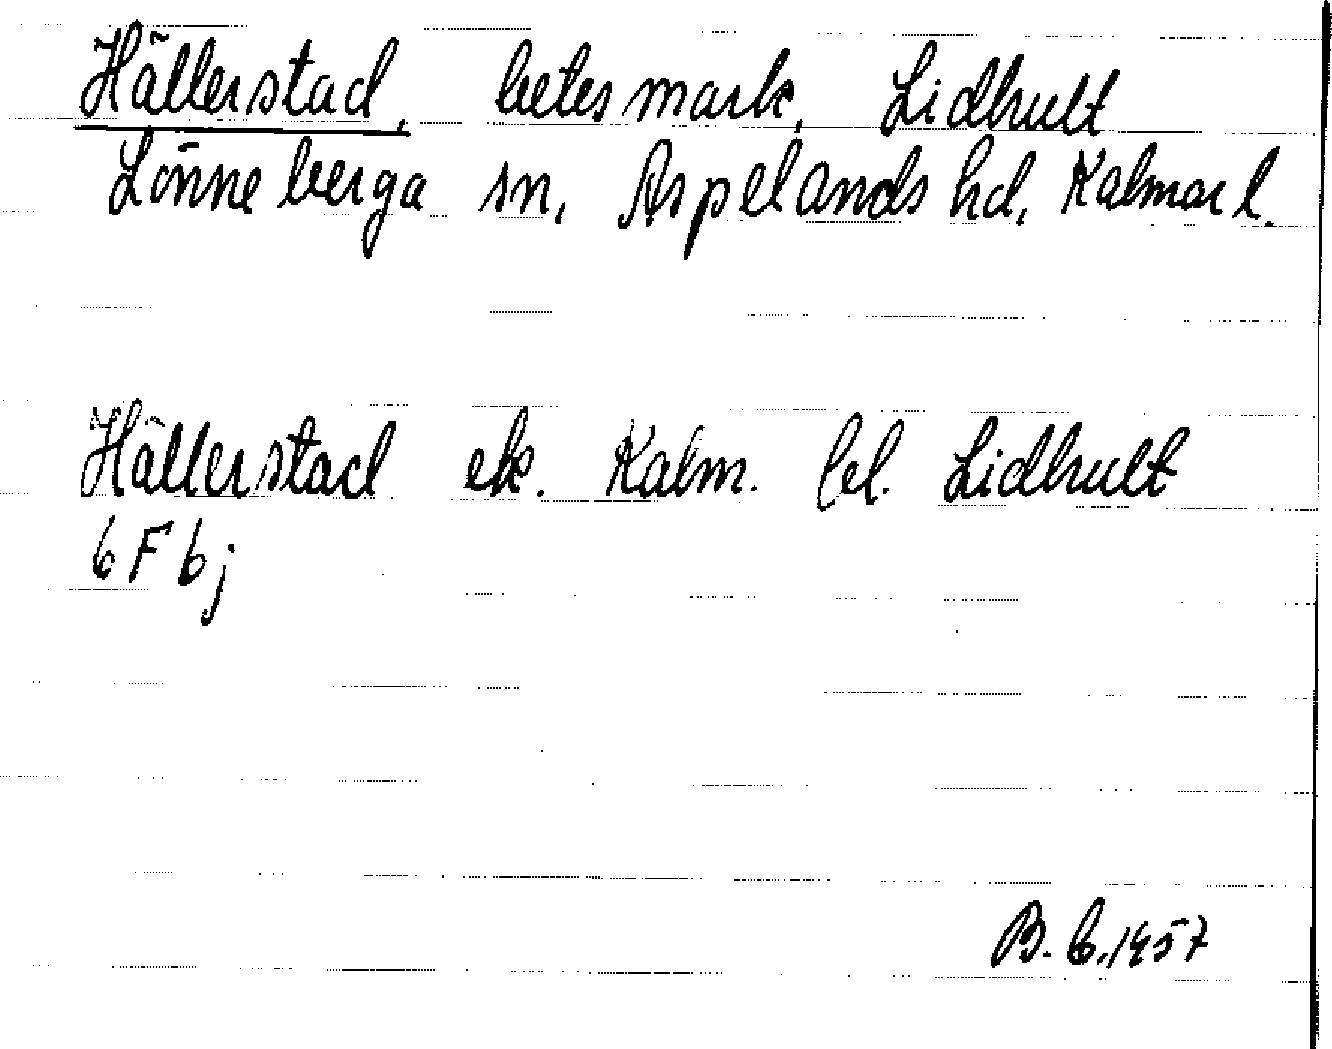 Hällerstad, betesmark, Lidhult
Lönneberga sn, Aspelands hd, Kalmar l.
Hällerstad ek. Kalm. bl. Lidhult
6F6j
B. C. 1957